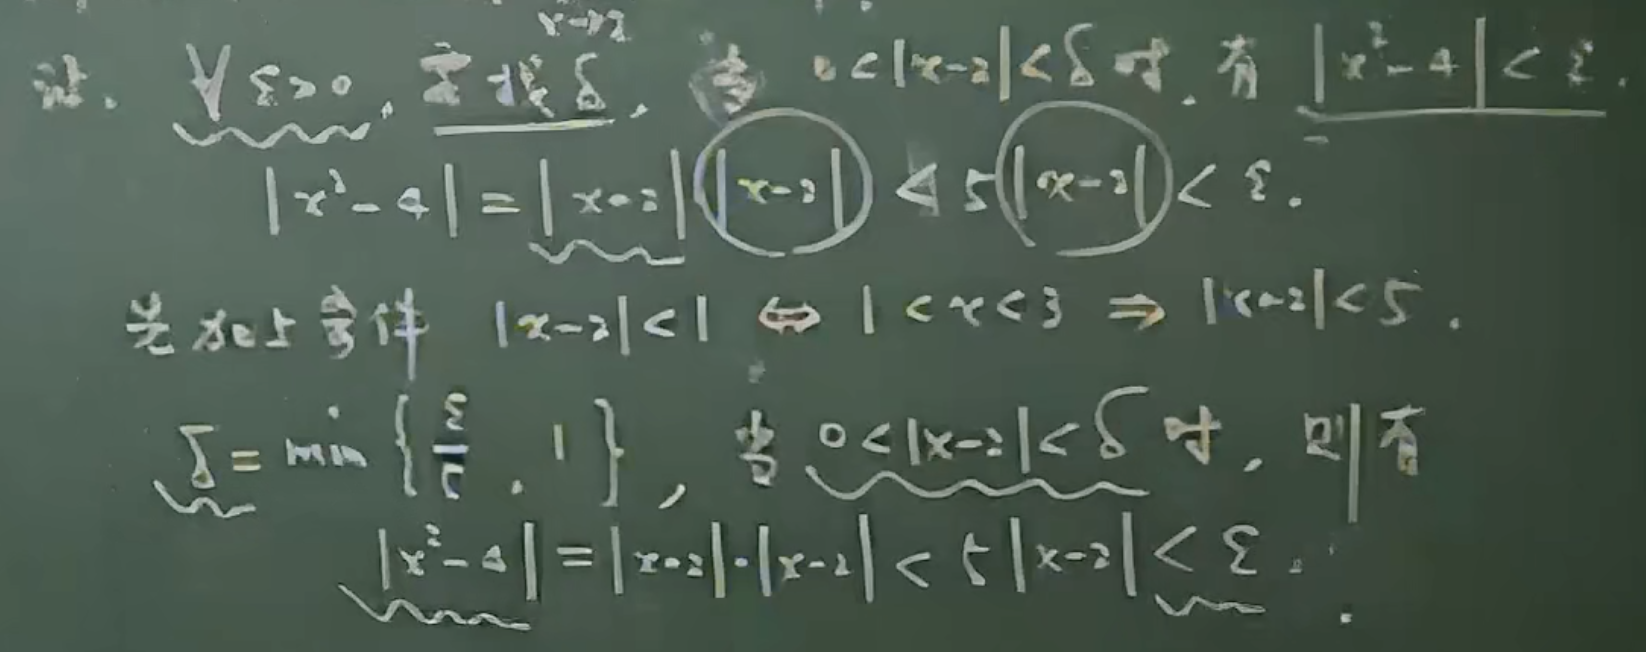 x→2
证. ∀ε>0, 要找δ, 当 0<|x-2|<δ时, 有 |x²-4|<ε.
|x²-4|=|x+2||x-2|<5|x-2|<ε.
先加上条件 |x-2|<1 ⇔ 1<x<3 ⇒ |x+2|<5.
δ=min{ε/5, 1}, 当 0<|x-2|<δ时, 则有
|x²-4|=|x+2|·|x-2|<5|x-2|<ε.